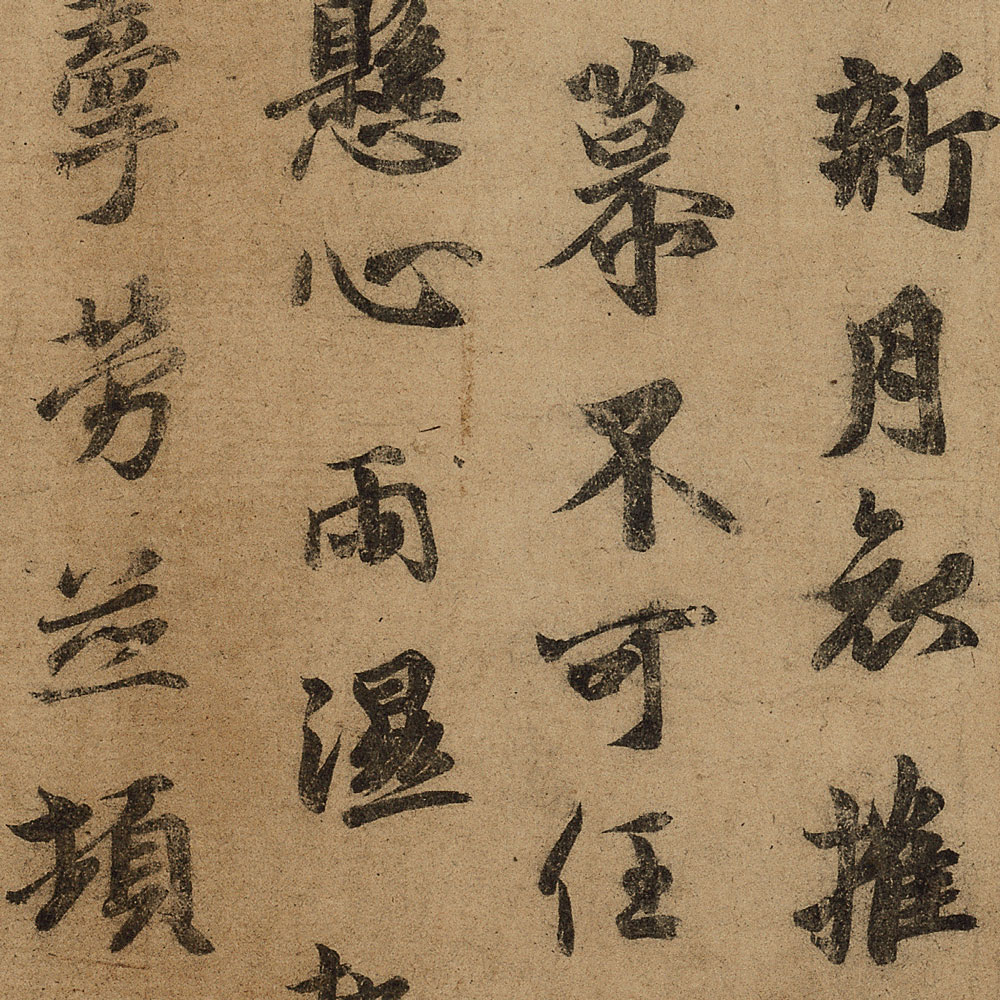 新月哀摧
慕不可任
懸心雨濕
牽勞並頓